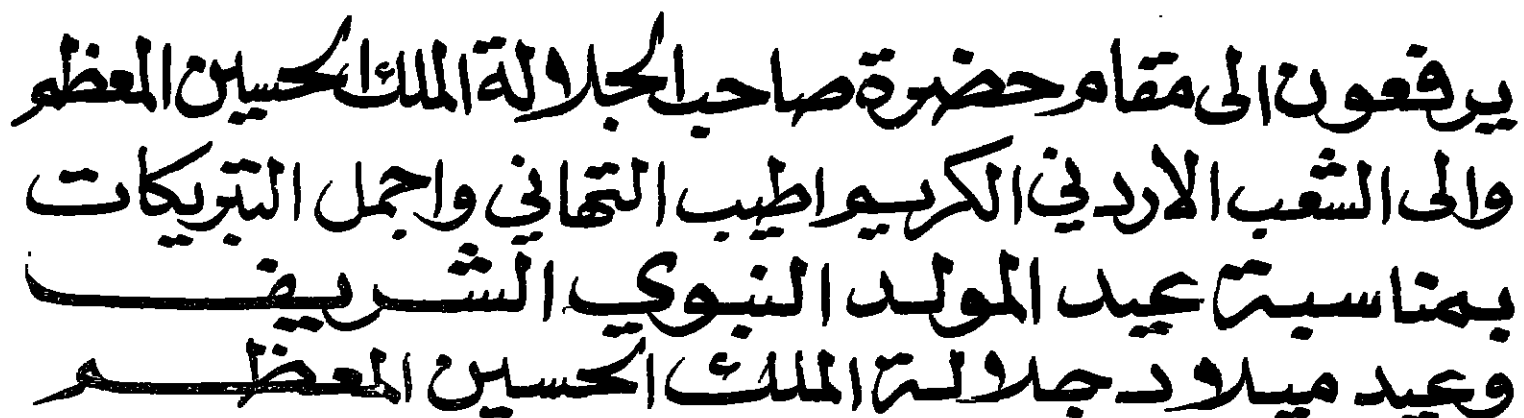 يرفعون الى مقام حضرة صاحب الجلالة الملك الحسين المعظم
والى الشعب الاردني الكريم اطيب التهاني واجمل التبريكات
بمناسبة عيد المولد النبوي الشريف
وعيد ميلاد جلالة الملك الحسين المعظم